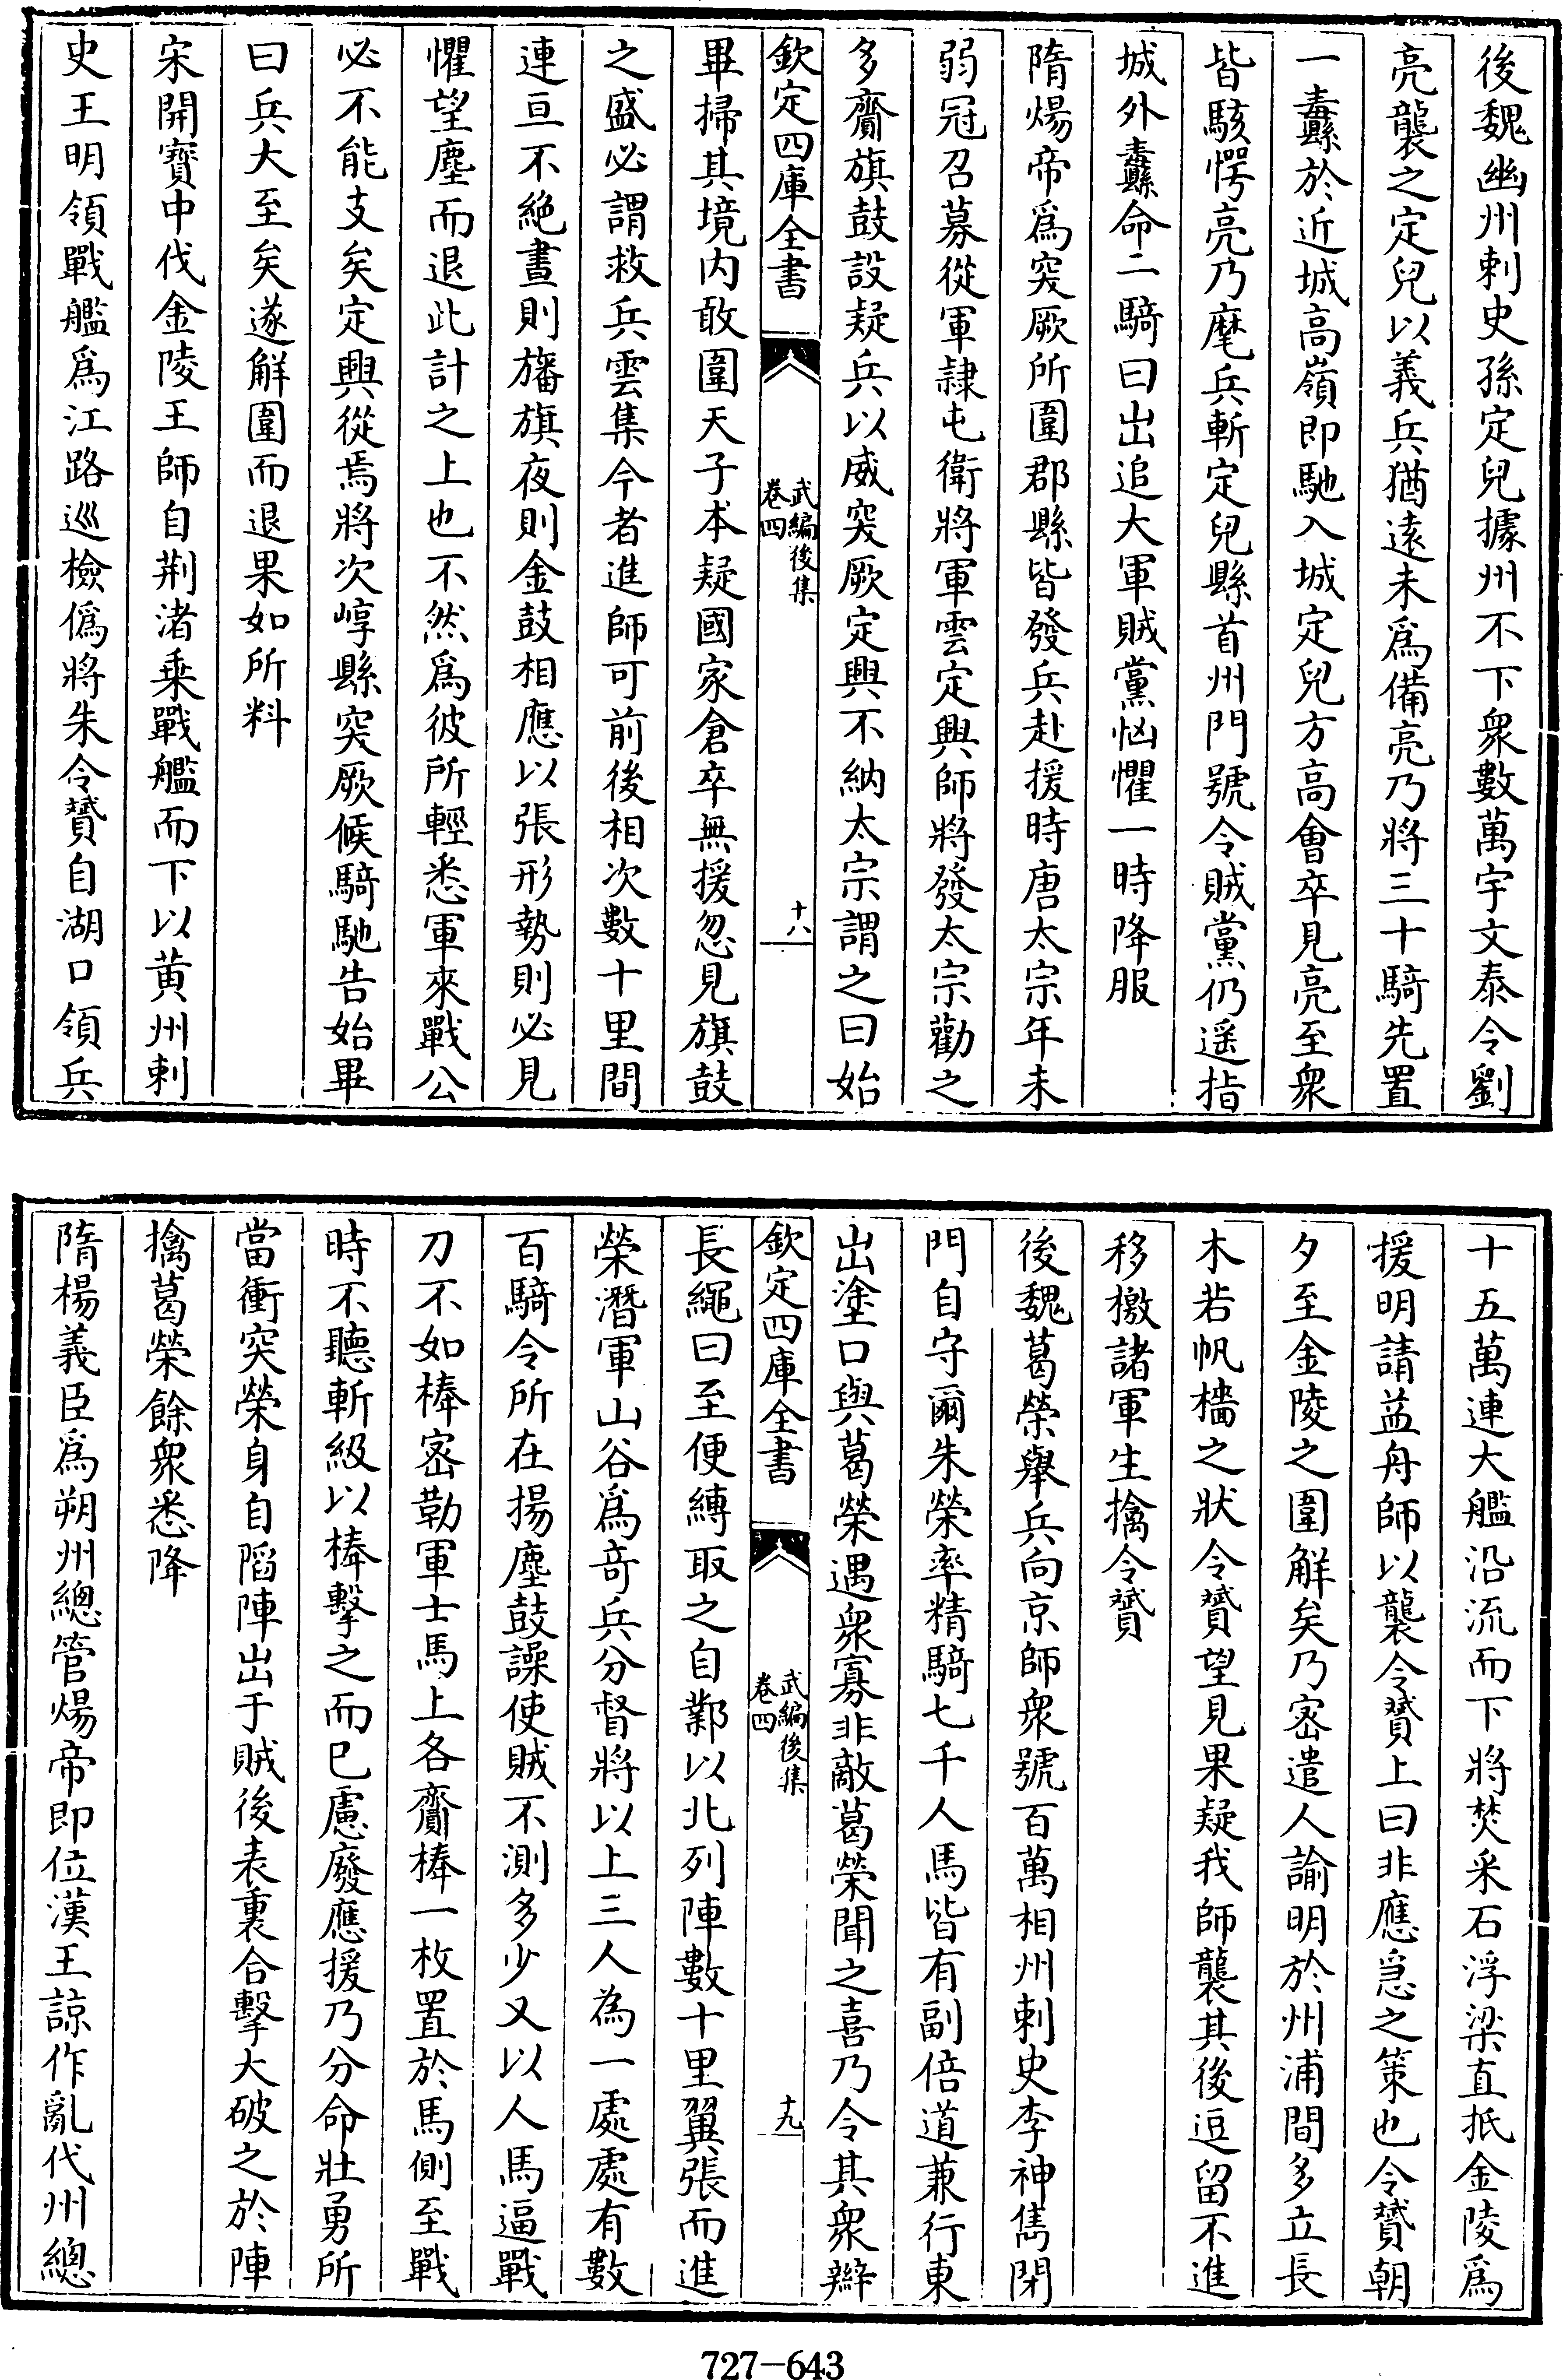 後魏幽州剌史孫定兒據州不下衆數萬宇文泰令劉
亮襲之定兒以義兵猶遠未爲備亮乃將三十騎先置
一纛於近城高嶺即馳入城定兒方高會卒見亮至衆
皆駭愕亮乃麾兵斬定兒縣首州門號令賊黨仍遥指
城外纛命二騎曰出追大軍賊黨恟懼一時降服
隋煬帝爲突厥所圍郡縣皆發兵赴援時唐太宗年未
弱冠召募從軍隷屯衛將軍雲定興師將發太宗勸之
多齎旗鼓設疑兵以威突厥定興不納太宗謂之曰始
欽定四庫全書
武編後集
卷四
十八
畢掃其境内敢圍天子本疑國家倉卒無援忽見旗鼓
之盛必謂救兵雲集今者進師可前後相次數十里間
連亘不絶晝則旛旗夜則金鼓相應以張形勢則必見
懼望塵而退此計之上也不然爲彼所輕悉軍來戰公
必不能支矣定興從焉將次崞縣突厥候騎馳告始畢
曰兵大至矣遂解圍而退果如所料
宋開寶中伐金陵王師自荆渚乗戰艦而下以黄州剌
史王明領戰艦爲江路巡檢僞將朱令贇自湖口領兵
十五萬連大艦沿流而下將焚采石浮梁直抵金陵爲
援明請益舟師以襲令贇上曰非應急之策也令贇朝
夕至金陵之圍解矣乃宻遣人諭明於州浦間多立長
木若帆檣之狀令贇望見果疑我師襲其後逗留不進
移檄諸軍生擒令贇
後魏葛榮舉兵向京師衆號百萬相州剌史李神儁閉
門自守爾朱榮率精騎七千人馬皆有副倍道兼行東
出塗口與葛榮遇衆寡非敵葛榮聞之喜乃令其衆辦
欽定四庫全書
武編後集
卷四
十九
長繩曰至便縳取之自鄴以北列陣數十里翼張而進
榮潛軍山谷爲竒兵分督將以上三人為一處處有數
百騎令所在揚塵鼓譟使賊不測多少又以人馬逼戰
刀不如棒宻勒軍士馬上各齎棒一枚置於馬側至戰
時不聽斬級以棒擊之而已慮廢應援乃分命壯勇所
當衝突榮身自䧟陣出于賊後表裏合擊大破之於陣
擒葛榮餘衆悉降
隋楊義臣爲朔州總管煬帝即位漢王諒作亂代州總
727-643